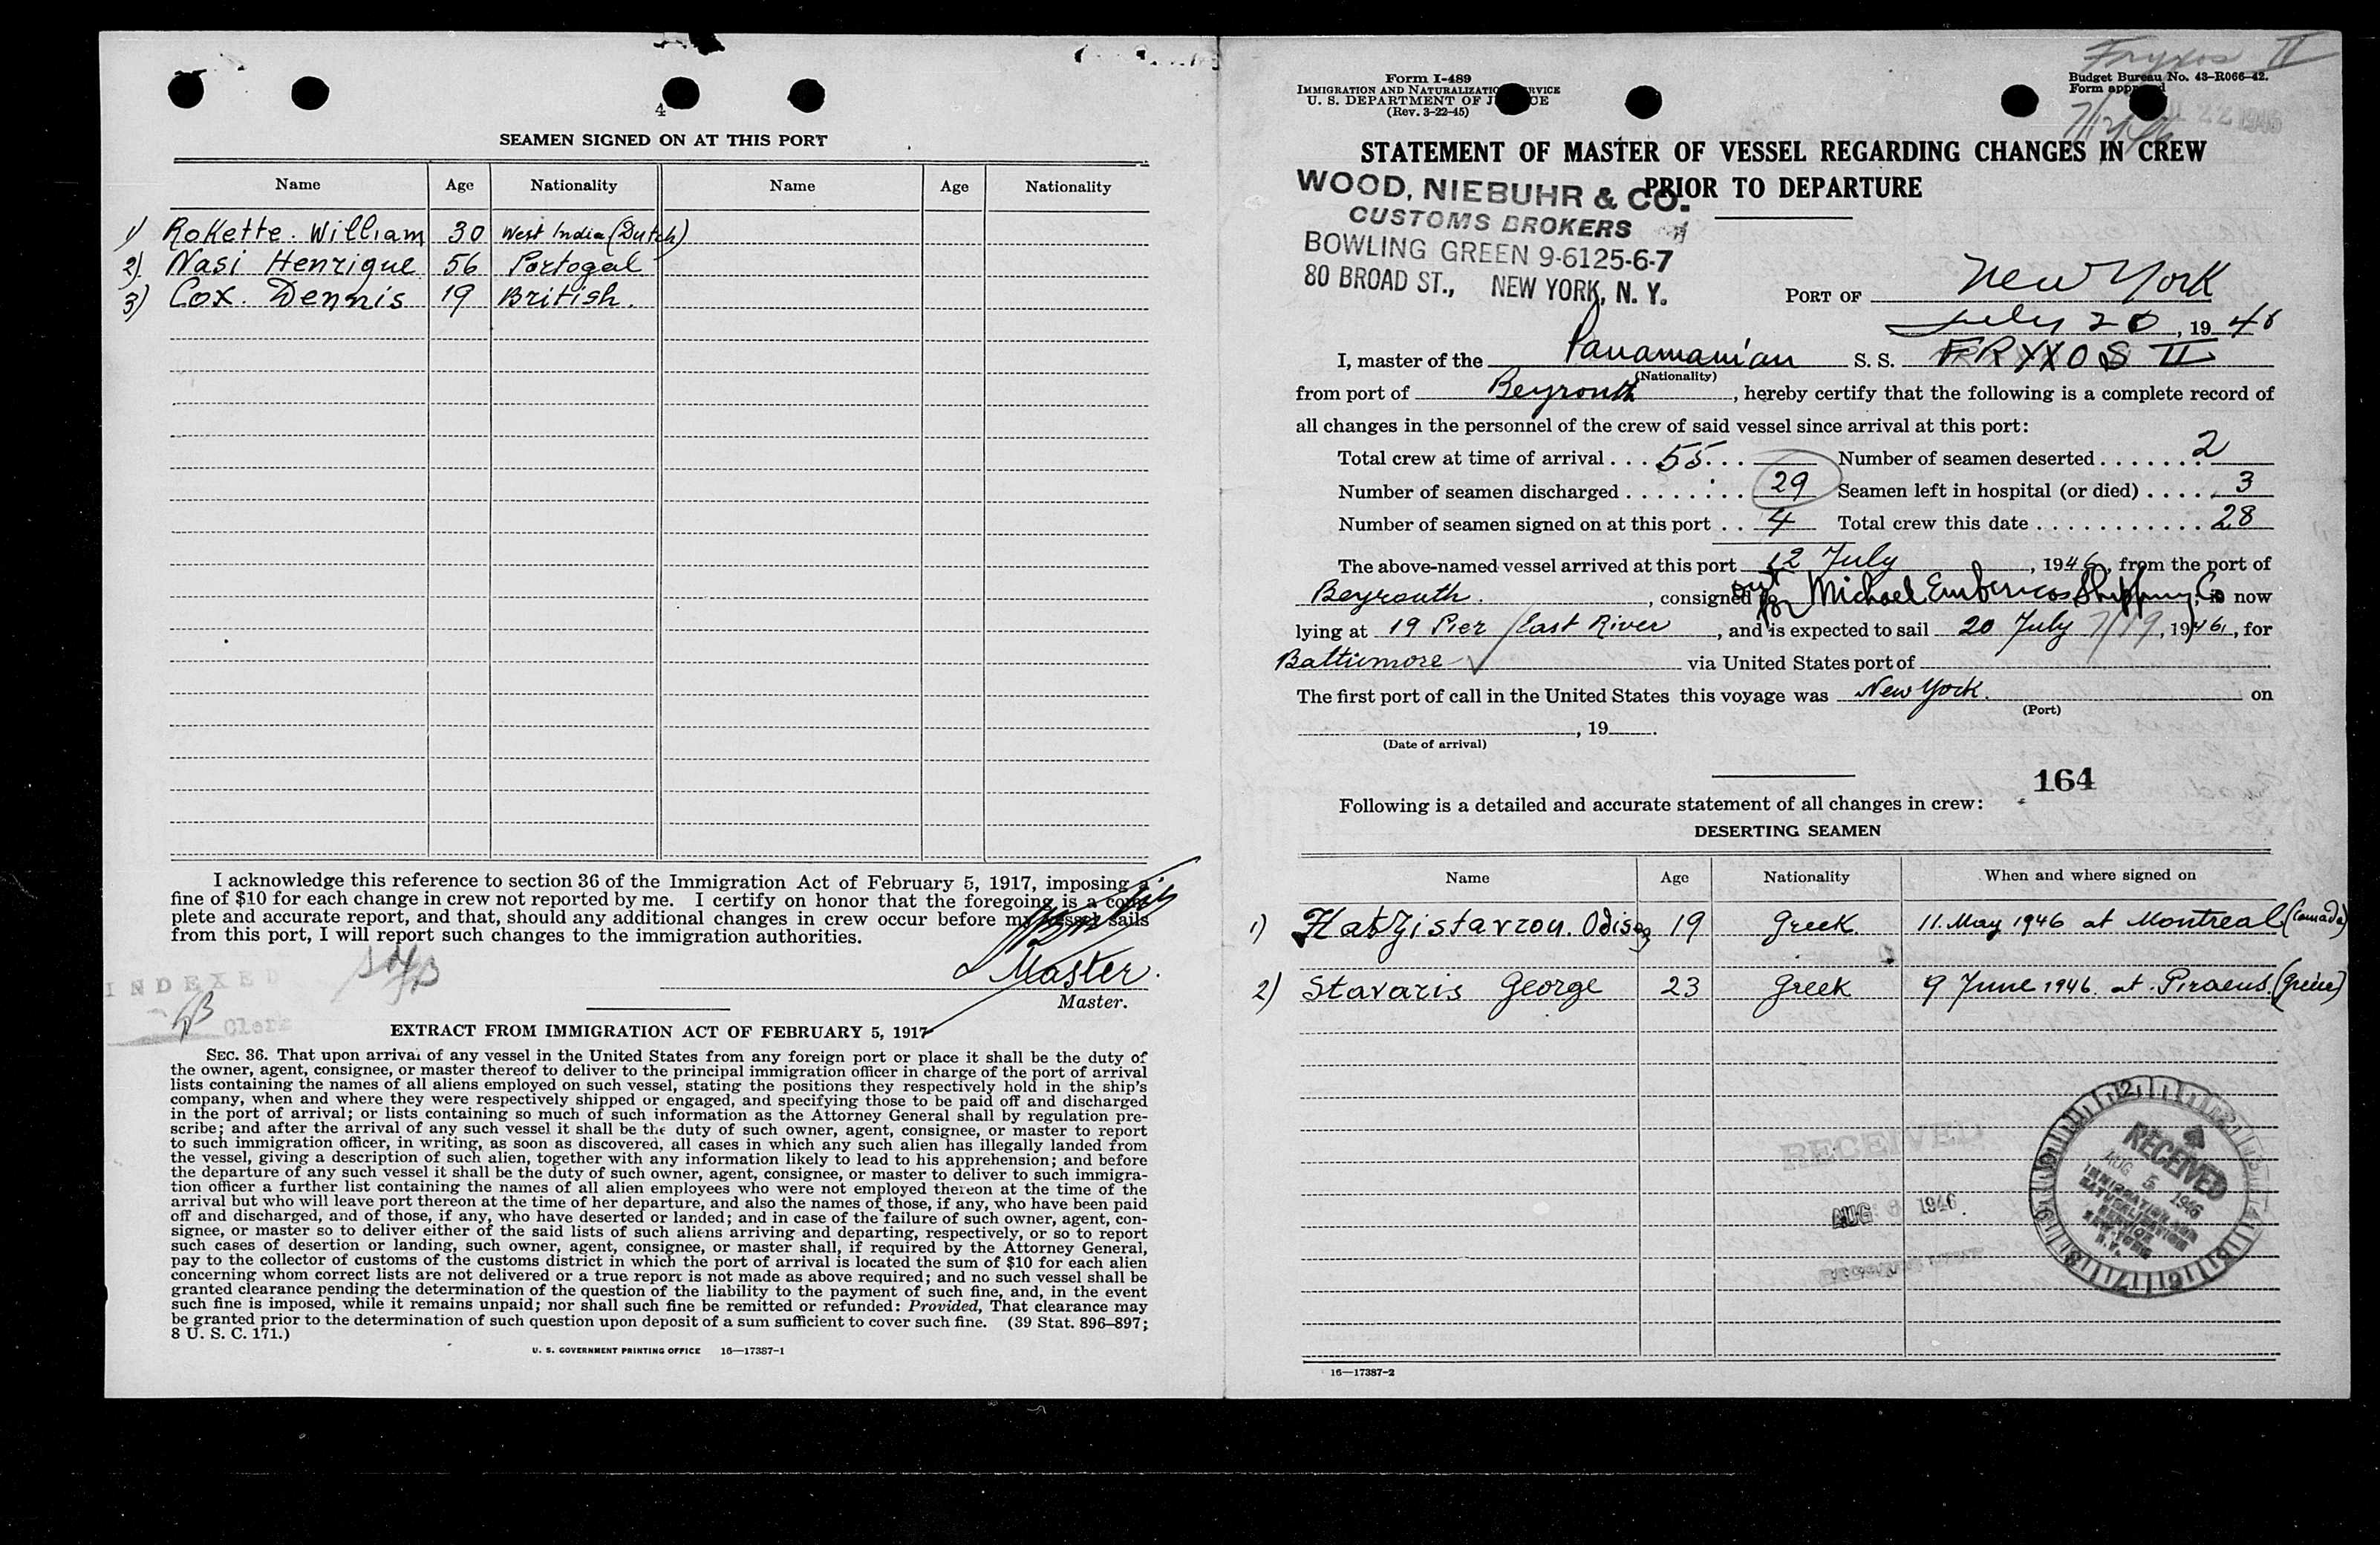 4
SEAMEN SIGNED ON AT THIS PORT
Name Age Nationality Name Age Nationality
1) Rokette. William 30 West India (Dutch)
2). Nasi Henrique 56 Portogal
3) Cox. Dennis 19 British.
I acknowledge this reference to section 36 of the Immigration Act of February 5, 1917, imposing a
fine of $10 for each change in crew not reported by me. I certify on honor that the foregoing is a com-
plete and accurate report, and that, should any additional changes in crew occur before my vessel sails
from this port, I will report such changes to the immigration authorities.
Master.
Master.
INDEXED
Clerk
EXTRACT FROM IMMIGRATION ACT OF FEBRUARY 5, 1917
SEC. 36. That upon arrival of any vessel in the United States from any foreign port or place it shall be the duty of
the owner, agent, consignee, or master thereof to deliver to the principal immigration officer in charge of the port of arrival
lists containing the names of all aliens employed on such vessel, stating the positions they respectively hold in the ship's
company, when and where they were respectively shipped or engaged, and specifying those to be paid off and discharged
in the port of arrival; or lists containing so much of such information as the Attorney General shall by regulation pre-
scribe; and after the arrival of any such vessel it shall be the duty of such owner, agent, consignee, or master to report
to such immigration officer, in writing, as soon as discovered, all cases in which any such alien has illegally landed from
the vessel, giving a description of such alien, together with any information likely to lead to his apprehension; and before
the departure of any such vessel it shall be the duty of such owner, agent, consignee, or master to deliver to such immigra-
tion officer a further list containing the names of all alien employees who were not employed thereon at the time of the
arrival but who will leave port thereon at the time of her departure, and also the names of those, if any, who have been paid
off and discharged, and of those, if any, who have deserted or landed; and in case of the failure of such owner, agent, con-
signee, or master so to deliver either of the said lists of such aliens arriving and departing, respectively, or so to report
such cases of desertion or landing, such owner, agent, consignee, or master shall, if required by the Attorney General,
pay to the collector of customs of the customs district in which the port of arrival is located the sum of $10 for each alien
concerning whom correct lists are not delivered or a true report is not made as above required; and no such vessel shall be
granted clearance pending the determination of the question of the liability to the payment of such fine, and, in the event
such fine is imposed, while it remains unpaid; nor shall such fine be remitted or refunded: Provided, That clearance may
be granted prior to the determination of such question upon deposit of a sum sufficient to cover such fine. (39 Stat. 896–897;
8 U. S. C. 171.)
U. S. GOVERNMENT PRINTING OFFICE 16—17387-1
Fryxos II
Form I-489
IMMIGRATION AND NATURALIZATION SERVICE
U. S. DEPARTMENT OF JUSTICE
(Rev. 3-22-45)
Budget Bureau No. 43-R066-42.
Form approved
22 1946
STATEMENT OF MASTER OF VESSEL REGARDING CHANGES IN CREW
PRIOR TO DEPARTURE
WOOD, NIEBUHR & CO.
CUSTOMS BROKERS
BOWLING GREEN 9-6125-6-7
80 BROAD ST., NEW YORK, N. Y.
PORT OF New York
July 20, 1946
I, master of the Panamanian S. S. FRYXOS II
(Nationality)
from port of Beyrouth, hereby certify that the following is a complete record of
all changes in the personnel of the crew of said vessel since arrival at this port:
Total crew at time of arrival . . . 55 . . . Number of seamen deserted . . . . . . . 2
Number of seamen discharged . . . . . . . . 29 Seamen left in hospital (or died) . . . . . 3
Number of seamen signed on at this port . . 4 Total crew this date . . . . . . . . . . . . 28
The above-named vessel arrived at this port 12 July, 1946, from the port of
Beyrouth., consigned to Michael Embericos Shipping Co, is now
lying at 19 Pier East River, and is expected to sail 20 July 7/19, 1946, for
Baltimore via United States port of
The first port of call in the United States this voyage was New York. on
(Port)
, 19 .
(Date of arrival)
164
Following is a detailed and accurate statement of all changes in crew:
DESERTING SEAMEN
Name Age Nationality When and where signed on
1) Hatzistavrou. Odiseas 19 Greek. 11. May 1946 at Montreal (Canada)
2) Stavaris George 23 Greek 9 June 1946. at Piraeus. (Greece)
RECEIVED
AUG 6 1946.
RECEIVED
AUG 5 1946
IMMIGRATION AND
NATURALIZATION
SERVICE
NEW YORK
N.Y.
16—17387-2